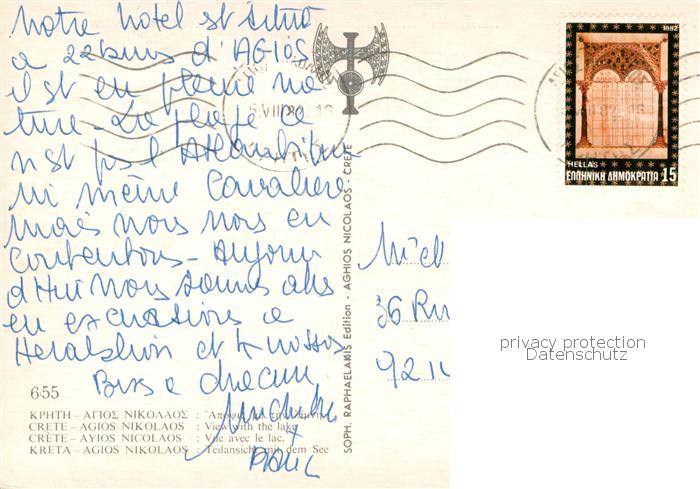 Notre hotel est situé
a 22 kms d'AGIOS
il est en pleine na
ture - La plage ce
n'est pas l'
ni même Cavalaire
mais nous nous en
contentons - Aujour
d'Hui nous sommes allés
en excursions a
Heraklion et Knossos
Bises a chacun
Michèle
+
655
ΚΡΗΤΗ - ΑΓΙΟΣ ΝΙΚΟΛΑΟΣ : Ἄποψις μὲ τὴν λίμνη
CRETE - AGIOS NIKOLAOS : View with the lake
CRÈTE - AYIOS NICOLAOS : Vue avec le lac,
KRETA - AGIOS NIKOLAOS : Teilansicht mit dem See
SOPH. RAPHAELAKIS Edition - AGHIOS NICOLAOS - CRETE
1982
HELLAS
ΕΛΛΗΝΙΚΗ ΔΗΜΟΚΡΑΤΙΑ 15
Mich
36 Ru
92
privacy protection
Datenschutz